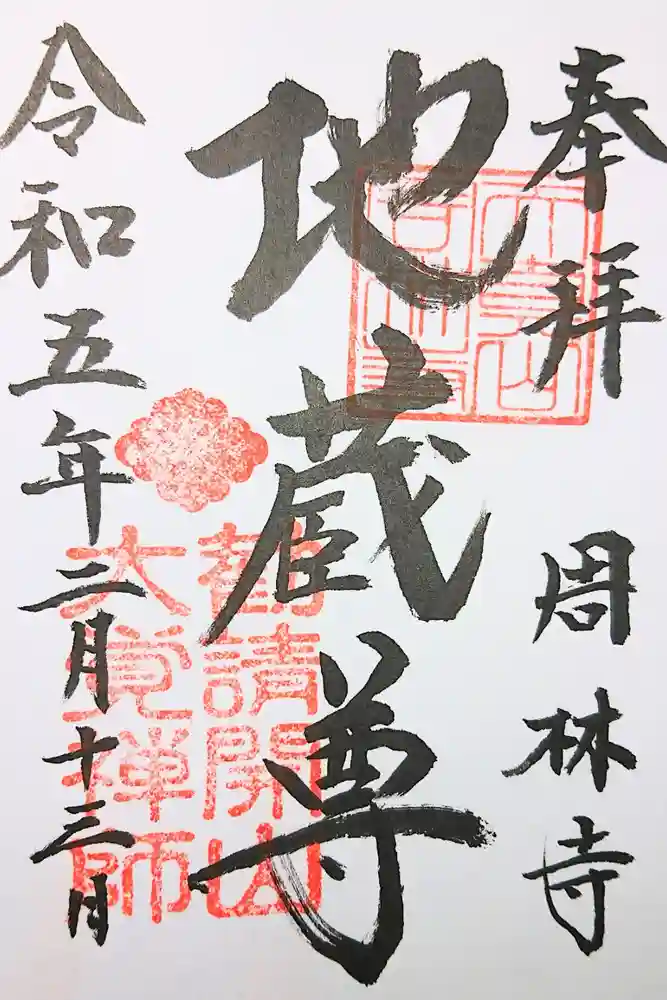 奉拝 周林寺
地蔵尊
令和五年二月十三日
勧請開山
大覚禅師